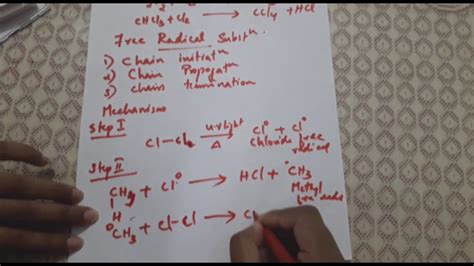 CHCl₃ + Cl₂ → CCl₄ + HCl
Free Radical Substⁿ.
1) Chain initiatⁿ
2) Chain Propogatⁿ
3) chain termination
Mechanism
Step I
Cl–Cl u.v light Δ → Cl° + Cl°
Chloride free
radical
Step II
CH₃ + Cl° → HCl + °CH₃
H
Methyl
free
°CH₃ + Cl–Cl → C